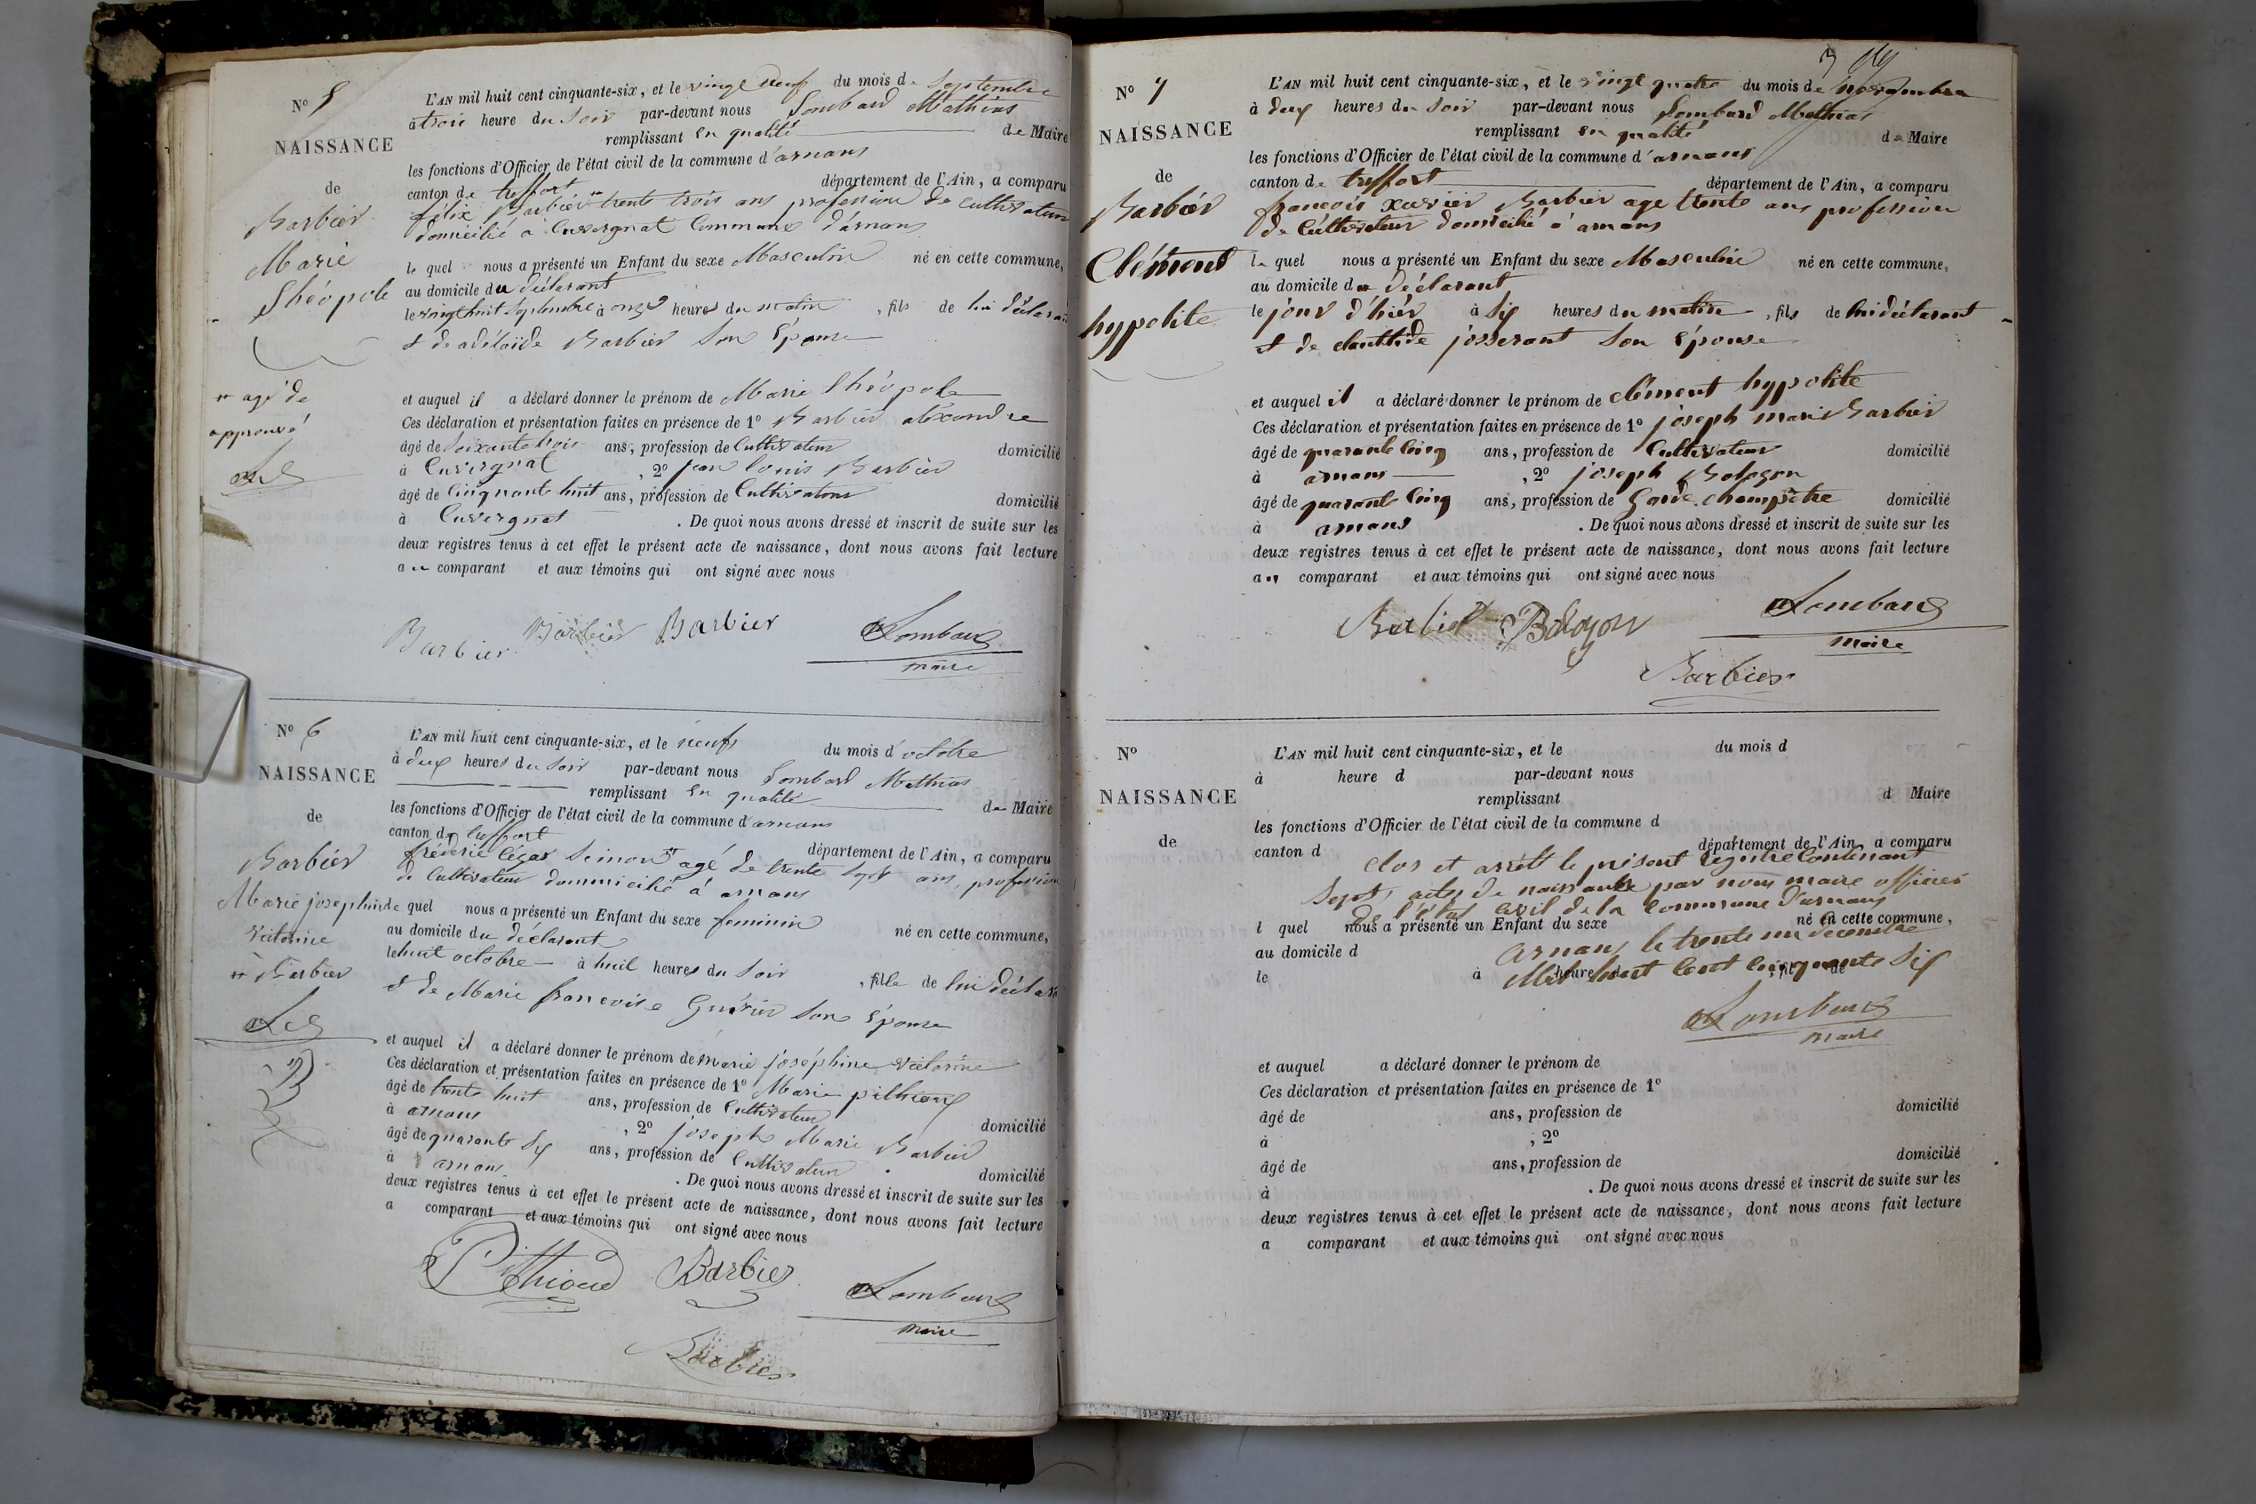 N° 5
NAISSANCE
de
Barbier
Marie
Théopole
L'AN mil huit cent cinquante-six, et le vingt neuf du mois de Septembre
à trois heure du Soir par-devant nous Lombard Mathias
remplissant En qualité de Maire
les fonctions d'Officier de l'état civil de la commune d'arnans
canton de treffort département de l'Ain, a comparu
félix Barbier trente trois ans profession de Cultivateur
domicilié a Cuvergnat Commune d'arnans
le quel nous a présenté un Enfant du sexe Masculin né en cette commune,
au domicile du déclarant
le vingt huit Septembre à onze heures du matin, fils de lui déclarant
& de adélaïde Barbier Son Épouse
agé de
approuvé
et auquel il a déclaré donner le prénom de Marie Théopole
Ces déclaration et présentation faites en présence de 1° Barbier aléxandre
âgé de Soixante trois ans, profession de Cultivateur domicilié
à Cuvergnat, 2° jean louis Barbier
âgé de Cinquante huit ans, profession de Cultivateur domicilié
à Cuvergnat. De quoi nous avons dressé et inscrit de suite sur les
deux registres tenus à cet effet le présent acte de naissance, dont nous avons fait lecture
au comparant et aux témoins qui ont signé avec nous
Barbier Barbier Barbier Lombard
maire
N° 6
NAISSANCE
de
Barbier
Marie josephine
victorine
Barbier
L'AN mil huit cent cinquante-six, et le neuf du mois d'octobre
à deux heures du Soir par-devant nous Lombard Mathias
remplissant En qualité de Maire
les fonctions d'Officier de l'état civil de la commune d'arnans
canton de treffort département de l'Ain, a comparu
fréderic agé de trente ans, profession
de Cultivateur dommicilié a arnans
le quel nous a présenté un Enfant du sexe feminin né en cette commune,
au domicile du déclarant
le huit octobre à huit heures du Soir, fille de lui déclarant
& de Marie francoise Guérin Son Épouse
et auquel il a déclaré donner le prénom de marie joséphine victorine
Ces déclaration et présentation faites en présence de 1° Marie pithioud
âgé de trente huit ans, profession de Cultivateur domicilié
à arnans, 2° joseph Marie Barbier
âgé de quarante Six ans, profession de Cultivateur domicilié
à arnans. De quoi nous avons dressé et inscrit de suite sur les
deux registres tenus à cet effet le présent acte de naissance, dont nous avons fait lecture
a comparant et aux témoins qui ont signé avec nous
Pithioud Barbier Lombard
maire
Barbier
N° 7
NAISSANCE
de
Barbier
Clément
hypolite
L'AN mil huit cent cinquante-six, et le vingt quatre du mois de novembre
à deux heures du Soir par-devant nous Lombard Mathias
remplissant En qualité de Maire
les fonctions d'Officier de l'état civil de la commune d'arnans
canton de treffort département de l'Ain, a comparu
francois xavier Barbier agé trente ans profession
de Cultivateur domicilié à arnans
le quel nous a présenté un Enfant du sexe Masculin né en cette commune,
au domicile du déclarant
le jour d'hiér à Six heures du matin, fils de lui déclarant
& de clautilde josserant Son Épouse
et auquel il a déclaré donner le prénom de clément hypolite
Ces déclaration et présentation faites en présence de 1° joseph marie Barbier
âgé de quarante Cinq ans, profession de Cultivateur domicilié
à arnans, 2° joseph Bologon
âgé de quarante Cinq ans, profession de Garde champêtre domicilié
à arnans. De quoi nous avons dressé et inscrit de suite sur les
deux registres tenus à cet effet le présent acte de naissance, dont nous avons fait lecture
au comparant et aux témoins qui ont signé avec nous
Barbier Bologon Lombard
maire
Barbier
N°
NAISSANCE
de
L'AN mil huit cent cinquante-six, et le du mois d
à heure d par-devant nous
remplissant d Maire
les fonctions d'Officier de l'état civil de la commune d
canton d département de l'Ain, a comparu
clos et arrêté le présent registre Contenant
Sept actes de naissance par nous maire officier
de l'état civil de la commune d'arnans
l quel nous a présenté un Enfant du sexe né en cette commune,
au domicile d
arnans le trente un décembre
le à heure d , fil de
Mil huit Cent Cinquante Six
Lombard
maire
et auquel a déclaré donner le prénom de
Ces déclaration et présentation faites en présence de 1°
âgé de ans, profession de domicilié
à , 2°
âgé de ans, profession de domicilié
à . De quoi nous avons dressé et inscrit de suite sur les
deux registres tenus à cet effet le présent acte de naissance, dont nous avons fait lecture
a comparant et aux témoins qui ont signé avec nous